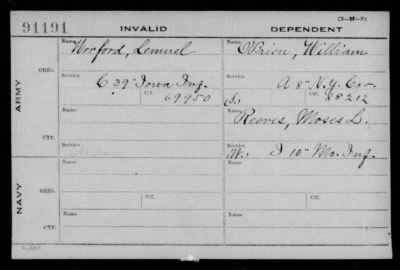 (3-315)
91191 INVALID DEPENDENT
Name Worford, Lemuel
Name O'Brien, William
ARMY
ORIG.
Service C 39" Iowa Inf.
Ctf. 69950
Service A 8" N.Y. Cav.
S. Ctf. 88212
Name
Name Reeves, Moses L.
CTF.
Service
Service W. I 10" Mo. Inf.
NAVY
Name
Name
ORIG.
Ctf.
Ctf.
Name
Name
CTF.